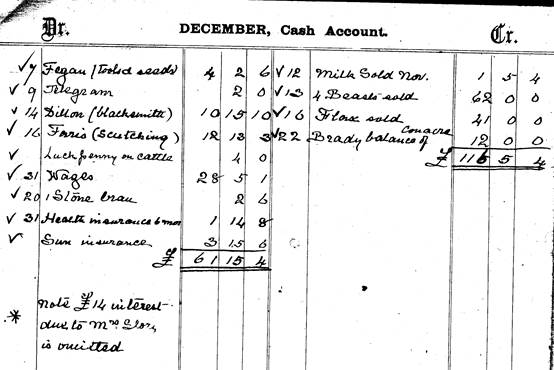 Dr. DECEMBER, Cash Account. Cr.
✓ 7 Fegan (tools & seeds) 4 2 6 ✓ 12 Milk Sold Nov. 1 5 4
✓ 9 Telegram 2 0 ✓ 13 4 Beasts sold 62 0 0
✓ 14 Dillon (blacksmith) 10 15 10 ✓ 16 Flax sold 41 0 0
✓ 16 Farris (scutching) 12 13 3 ✓ 22 Brady balance of conacre 12 0 0
✓ Luckpenny on cattle 4 0 £ 116 5 4
✓ 31 Wages 28 5 1
✓ 20 1 Stone bran 2 6
✓ 31 Health insurance 6 mos 1 14 8
✓ Sun insurance 3 15 6
£ 61 15 4
* note £14 interest
due to Mrs
is omitted